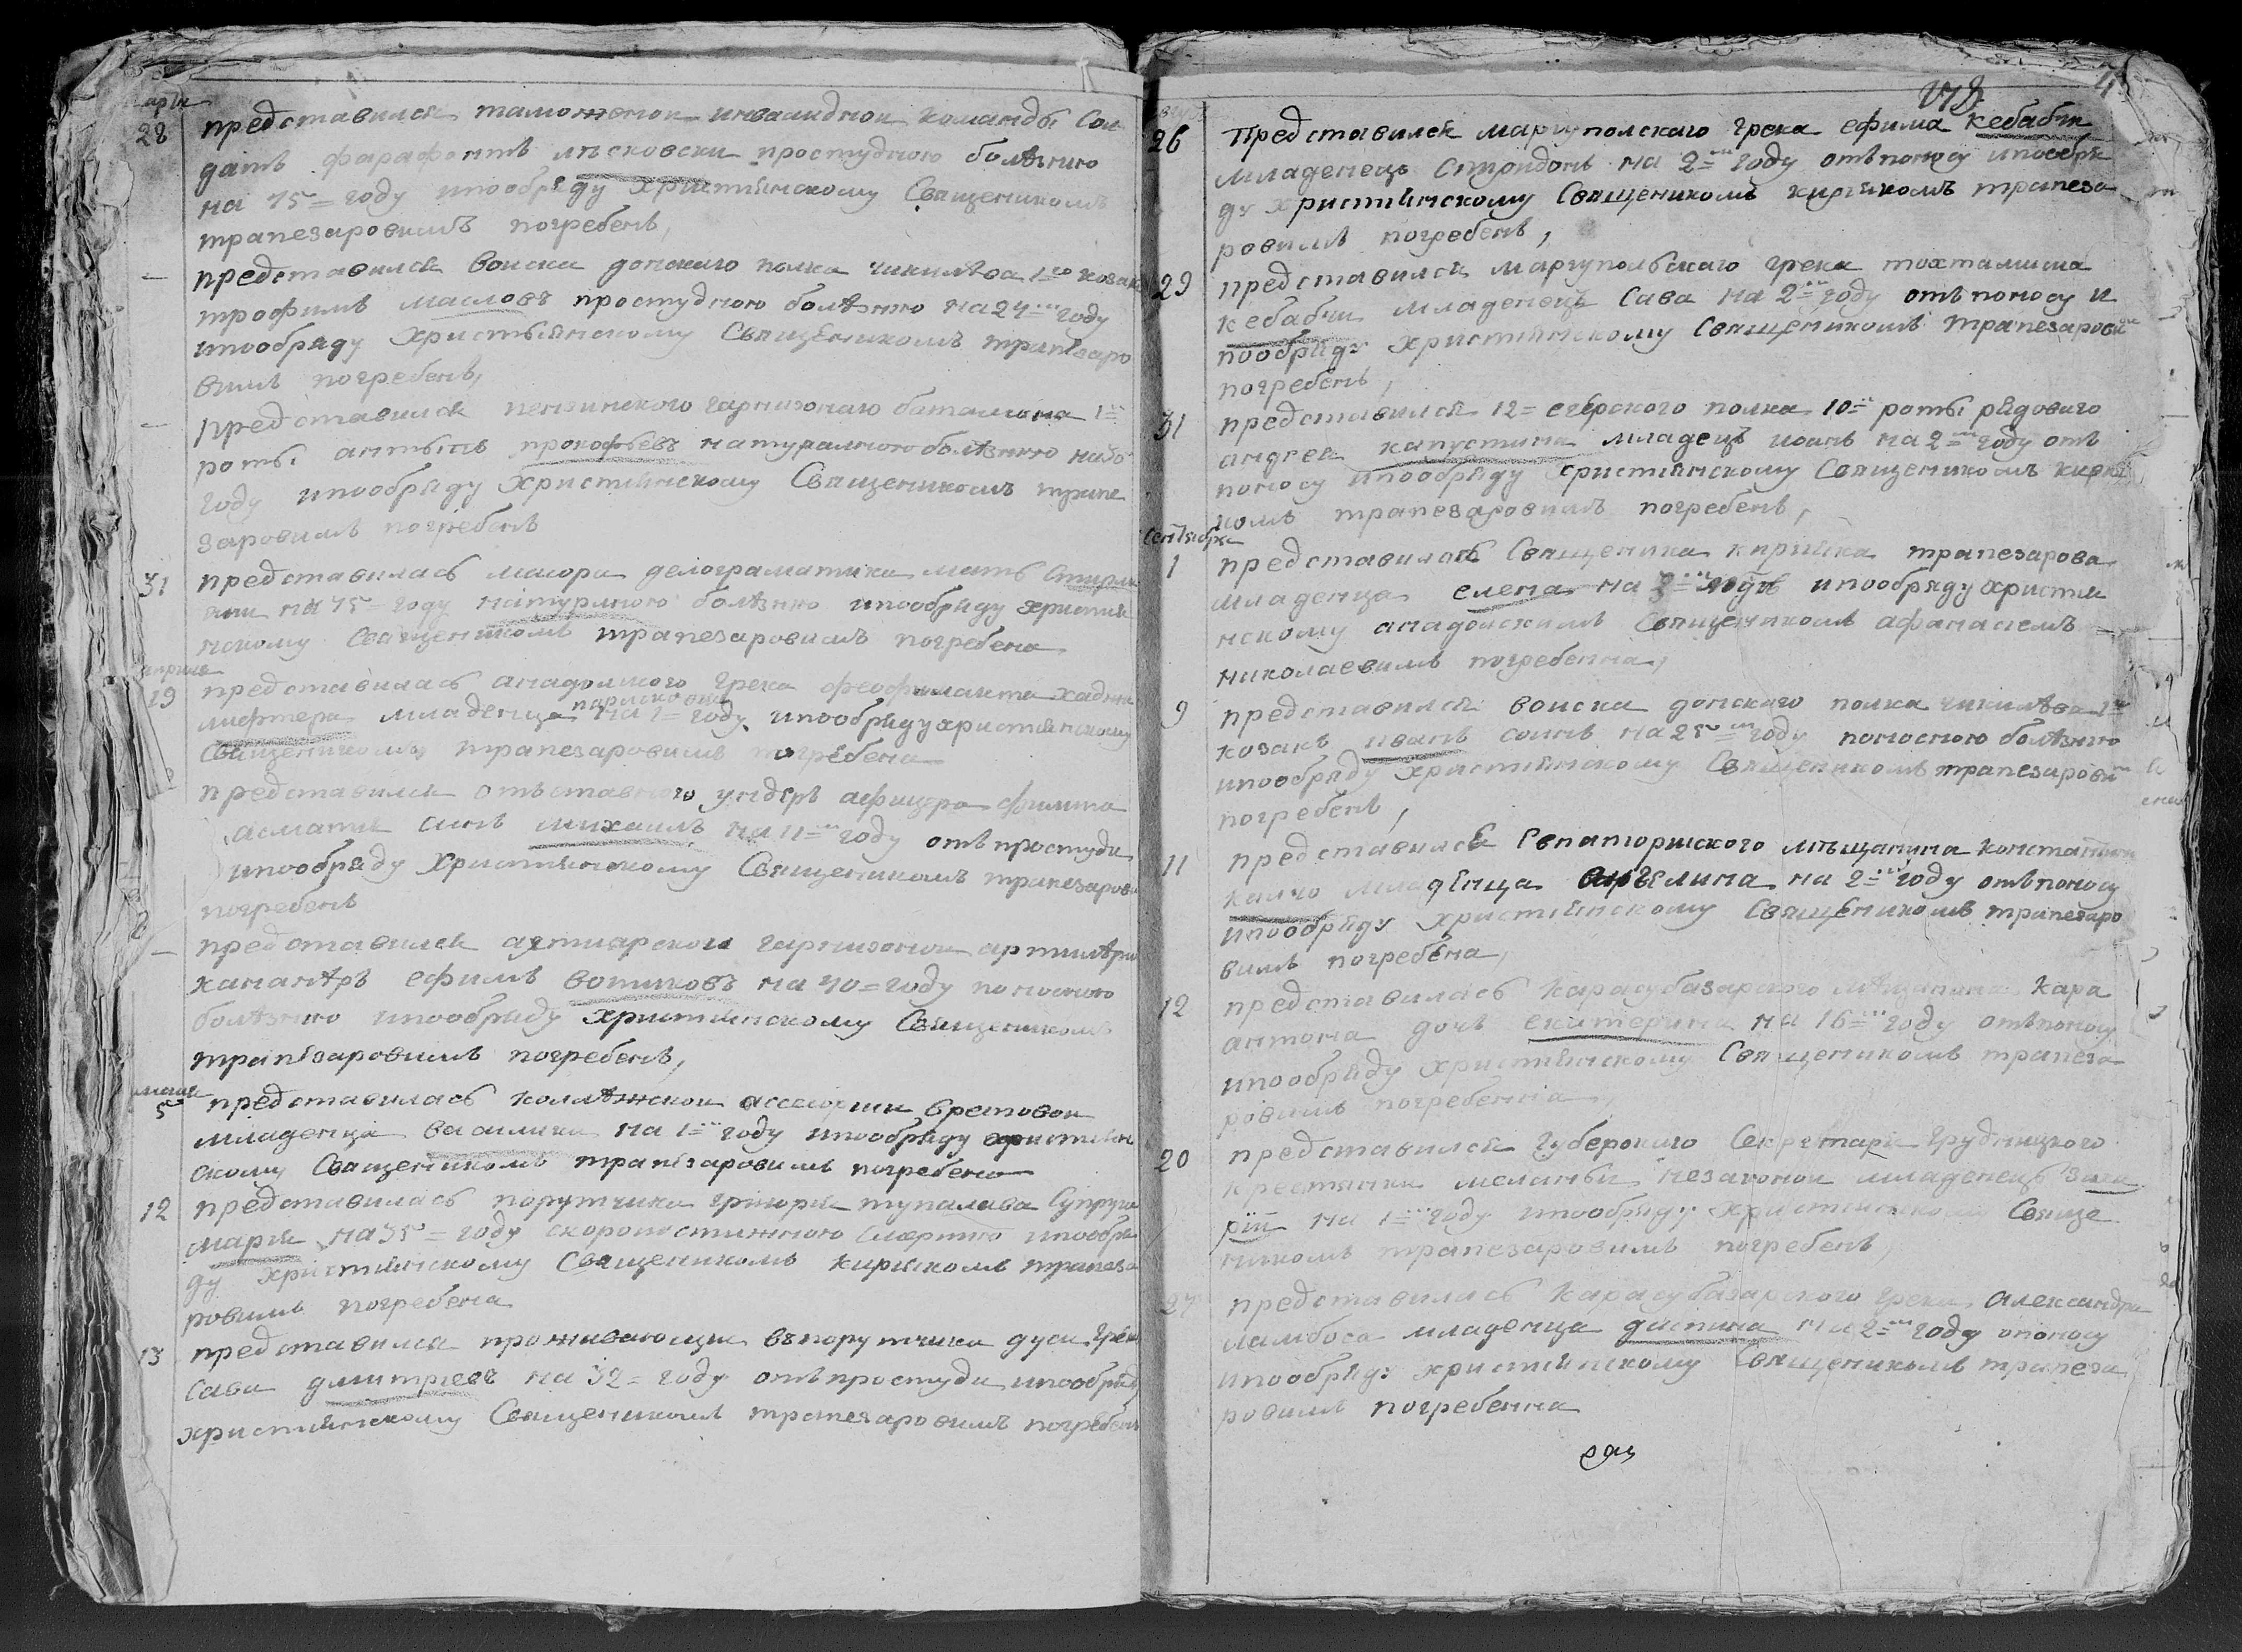 28 представился таможенои инвалиднои команды Сол
датъ фарафонтъ лисковски простудною болѣзнию
на 75 = году ипообряду християнскому Священикомъ
трапезаровимъ погребенъ,
— представился воиска донскаго полка чикилѣва 1го козакъ
трофимъ масловъ простудною болѣзнию на 24 = году
ипообряду Християнскому Священикомъ трапезаро
вимъ погребенъ,
— представился пензинского гарнизонаго баталиона 1
роты антыпъ прокофьевъ натуралною болѣзнию на
году ипообряду Християнскому Священикомъ трапе
заровимъ погребенъ
31 представилась маиора делограматика мать
на 75 = году натурлною болѣзнию ипообряду христия
нскому Священикомъ трапезаровимъ погребена
априля
19 представилась анадолского грека феофиланта хаджи
парасковия
лифтера младенца на 1 = году ипообряду християнскому
Священикомъ трапезаровимъ погребена
представился отъставного ундеръ афицера филипа
синъ михаилъ на 11 = году отъ простуди
ипообряду Християнскому Священикомъ трапезарови
погребенъ
— представился ахтиарского гарнизонои артилѣрии
кананѣръ ефимъ вотиковъ на 40 = году поносною
болѣзнию ипообряду християнскому Священикомъ
трапезаровимъ погребенъ,
маия
5 представилась колѣжскои ассесорши вретовои
младенца василики на 1 = году ипообряду християн
скому Священикомъ трапезаровимъ погребена
12 представилась порутчика григория тупалава Супруга
мария на 35 = году скоропостижною смертию ипообря
ду християнскому Священикомъ кириякомъ трапеза
ровимъ погребена
13 представился проживающи въ порутчика дуси грекъ
Сава дмитриевъ на 32 = году отъ простуди ипообряду
християнскому Священикомъ трапезаровимъ погребенъ
26 Представился мариуполскаго грека ефима кебабчи
младенецъ Спиридонъ на 2 = году отъ поносу ипообря
ду християнскому Священикомъ кириякомъ трапеза
ровимъ погребенъ,
29 представился мариупольскаго грека тохтамиша
кебабчи младенецъ Сава на 2 = году отъ поносу и
пообряду християнскому Священикомъ трапезарови
погребенъ,
31 представился 12 = егерского полка 10 = роты рядоваго
андрея капустина младецъ иоанъ на 2 = году отъ
поносу ипообряду християнскому Священикомъ кирия
комъ трапезаровимъ погребенъ,
Сентября
1 представилась Священика кирияка трапезарова
младенца елена на 3 = году ипообряду христия
нскому анадолскимъ Священикомъ афанасиемъ
николаевимъ погребенна,
9 представился воиска донского полка чикилѣва 1
козакъ иванъ соинъ на 25 = году поносною болѣзнию
ипообряду християнскому Священикомъ трапезарови
погребенъ,
11 представился Евпаториского мѣщанина константина
калчо младенца ангелина на 2 = году отъ поносу
ипообряду християнскому Священикомъ трапезаро
вимъ погребена,
12 представилась Карасубазарского мѣщанина Кара
антона дочъ екатерина на 16 = году отъ поносу
ипообряду християнскому Священикомъ трапеза
ровимъ погребенна,
20 представился губерскаго Секретаря грудницкого
крестянки меланьи незаконои младенецъ Заха
рiи на 1 = году ипообряду християнскому Свяще
никомъ трапезаровимъ погребенъ,
27 представилась Карасубазарского грека александра
ламбоса младенца диспина на 2 = году опоносу
ипообряду християнскому Священикомъ трапеза
ровимъ погребенна